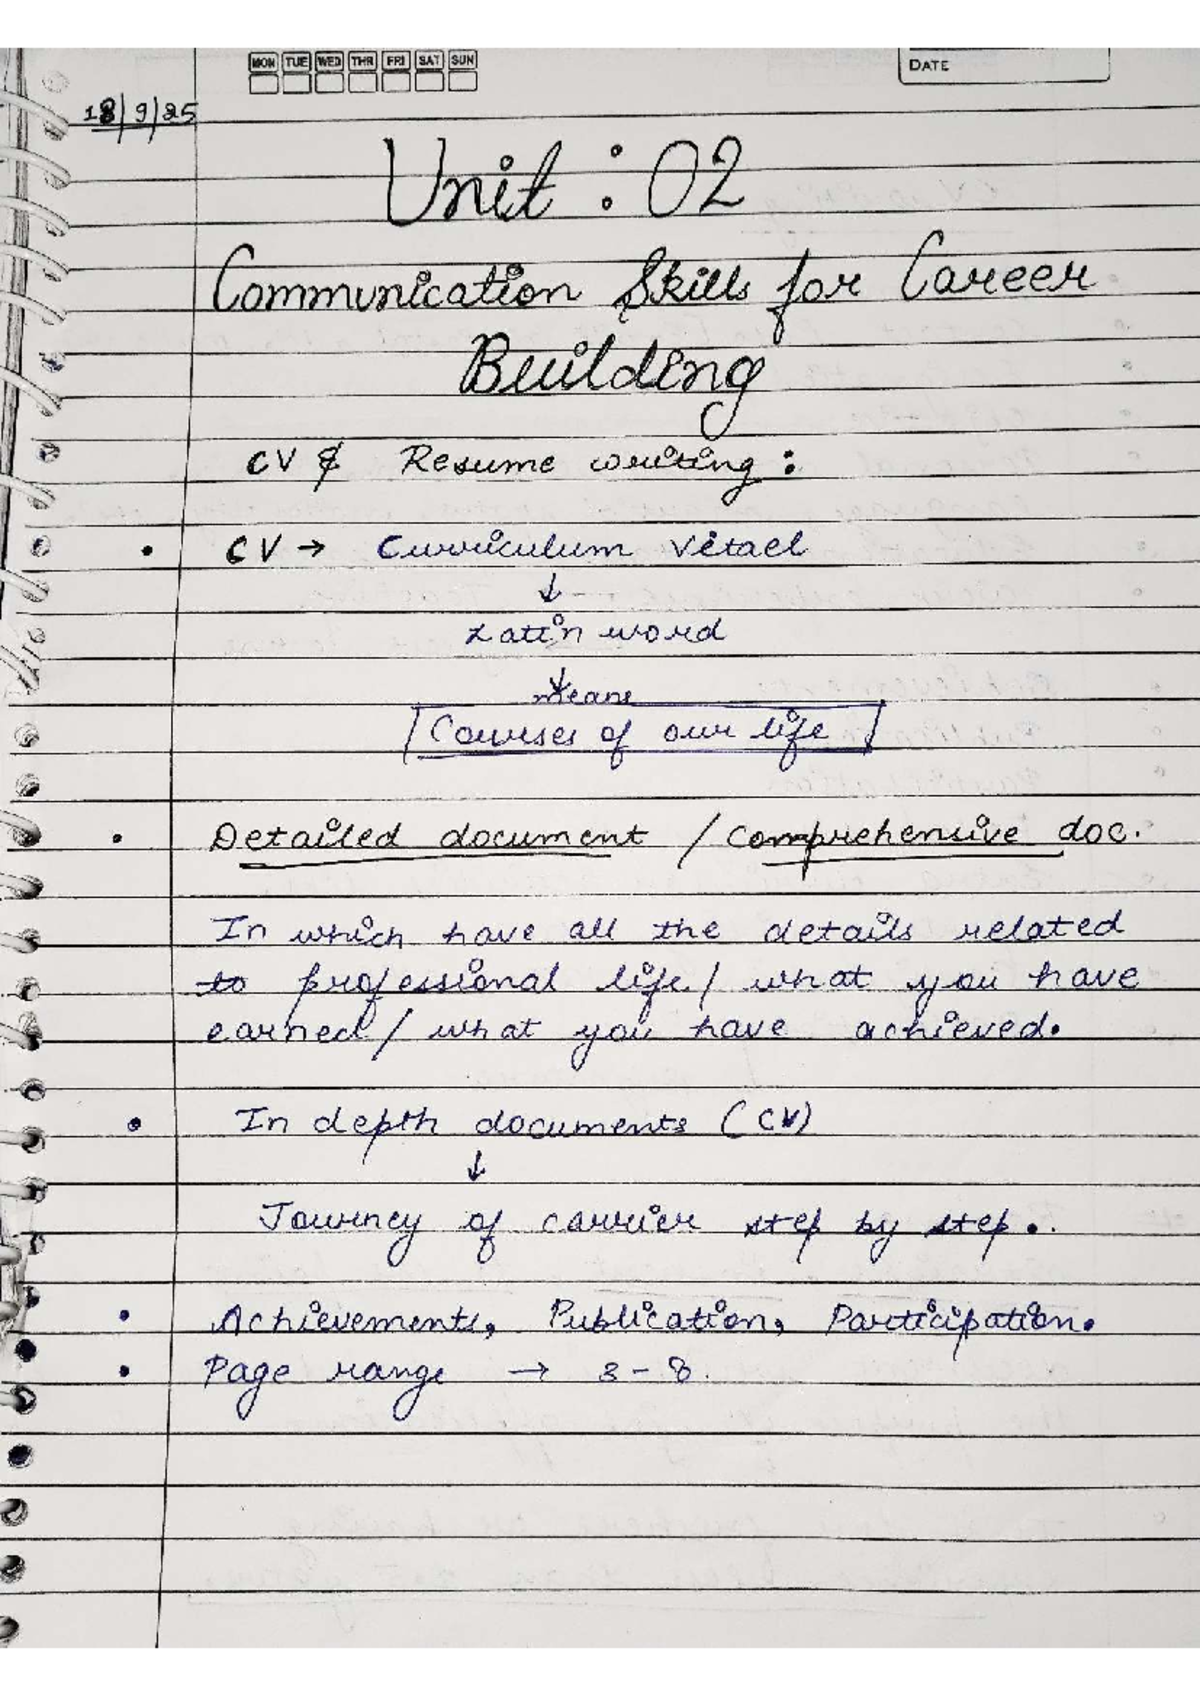 MON TUE WED THR FRI SAT SUN
DATE
18/9/25
Unit : 02
Communication Skills for Career
Building
CV & Resume writing :
• CV → Curriculum Vitael
↓
Latin word
↓
means
Courses of our life
• Detailed document / Comprehensive doc.
In which have all the details related
to professional life / what you have
earned / what you have achieved.
• In depth documents (CV)
↓
Journey of carrier step by step.
• Achievements, Publication, Participation.
• Page range → 3 - 8.